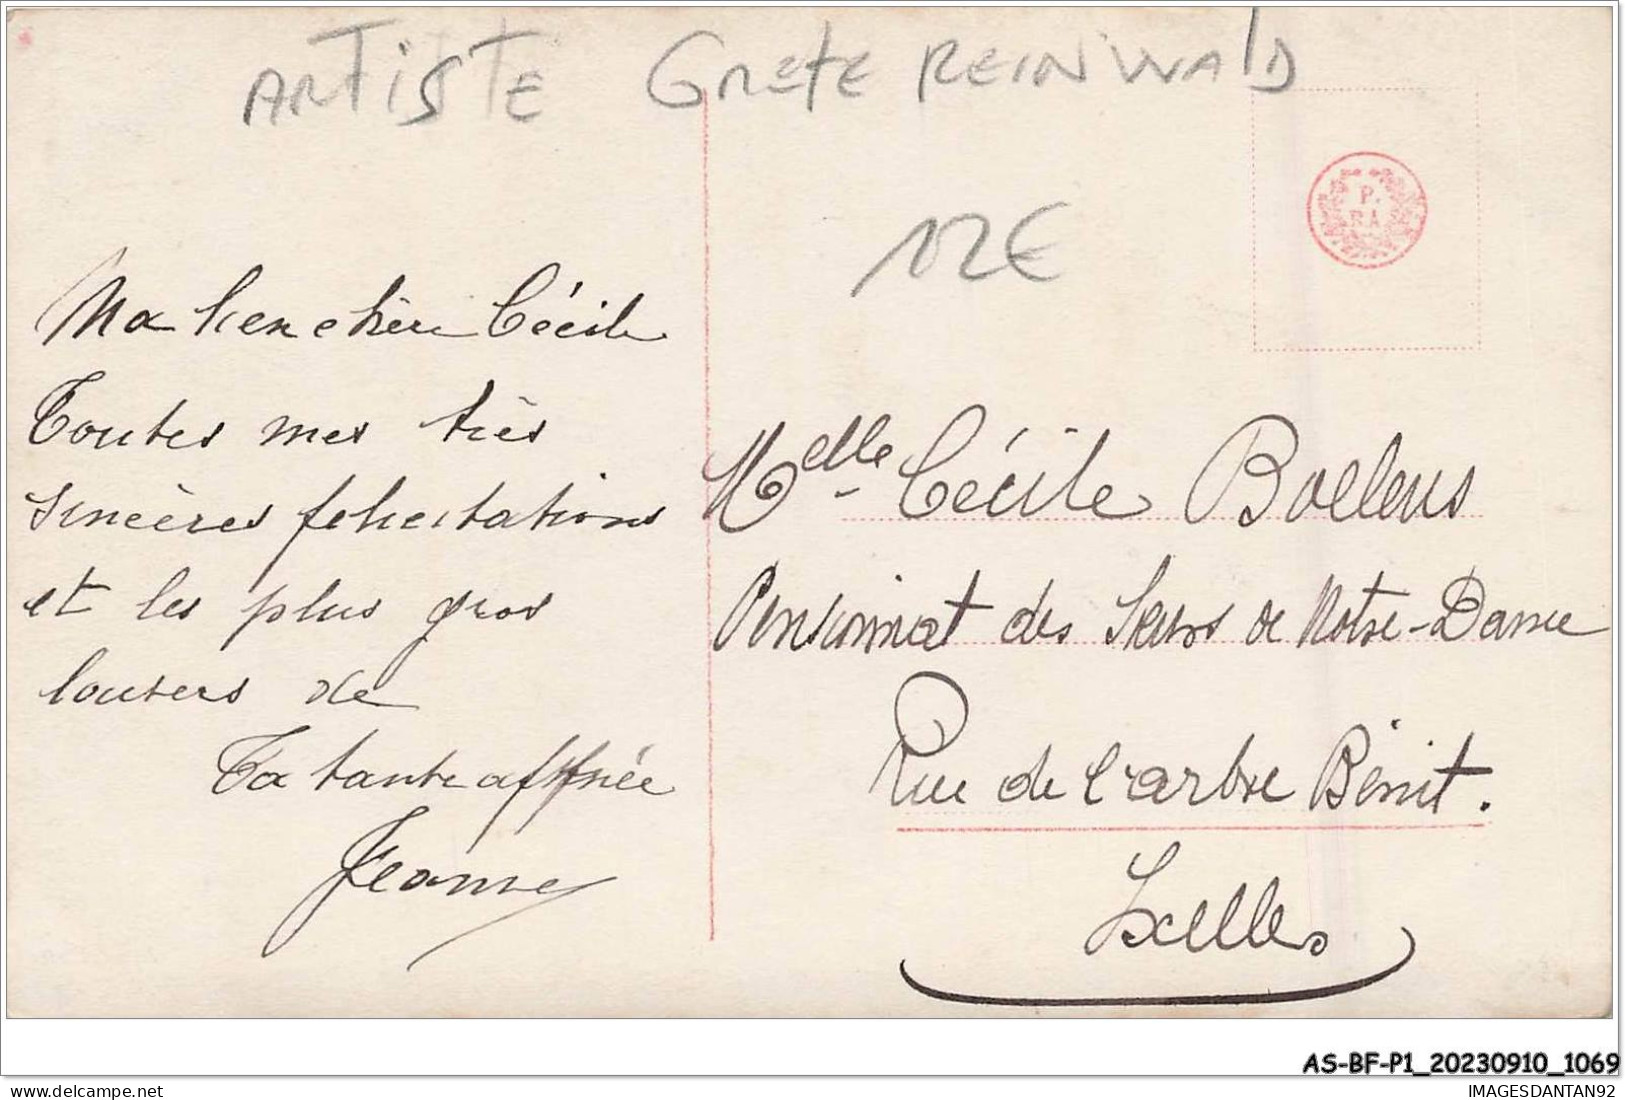 ARTISTE Grete REINWALD
12€
P.
RA
Ma bien chère Cécile
Toutes mes très
sincères félicitations
et les plus gros
baisers de
Ta tante affnée
Jeanne
Melle Cécile Boelens
Pensionnat des Sœurs de Notre-Dame
Rue de l'arbre Bénit.
Ixelles
AS-BF-P1_20230910_1069
IMAGESDANTAN92